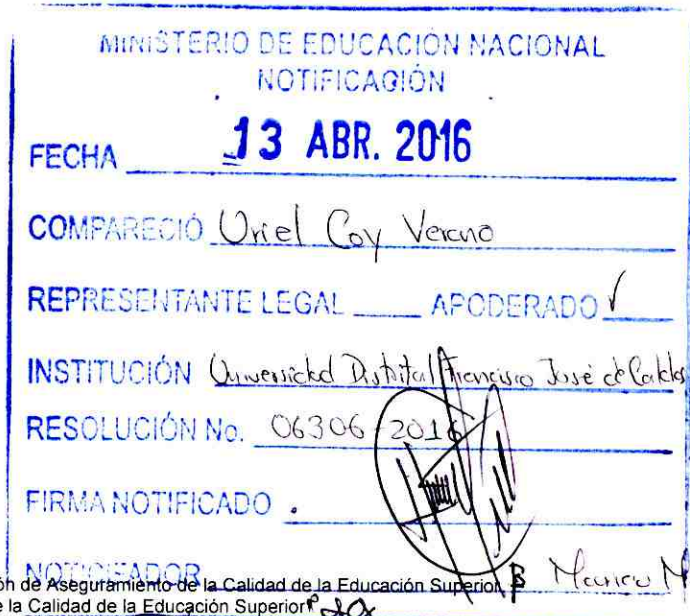 MINISTERIO DE EDUCACIÓN NACIONAL
NOTIFICACIÓN
FECHA 13 ABR. 2016
COMPARECIÓ Uriel Coy Verano
REPRESENTANTE LEGAL ____ APODERADO ✓
INSTITUCIÓN Universidad Distrital Francisco José de Caldas
RESOLUCIÓN No. 06306-2016
FIRMA NOTIFICADO
NOTIFICADOR
ón de Aseguramiento de la Calidad de la Educación Superior
e la Calidad de la Educación Superior